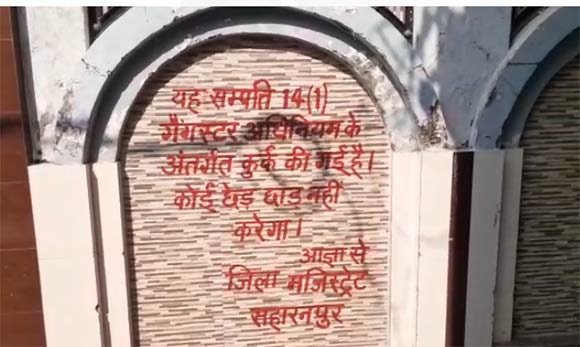 यह सम्पति 14(1)
गैगस्टर अधिनियम के
अंतर्गत कुर्क की गई है।
कोई छेड़ छाड़ नहीं
करेगा।
आज्ञा से
जिला मजिस्ट्रेट
सहारनपुर